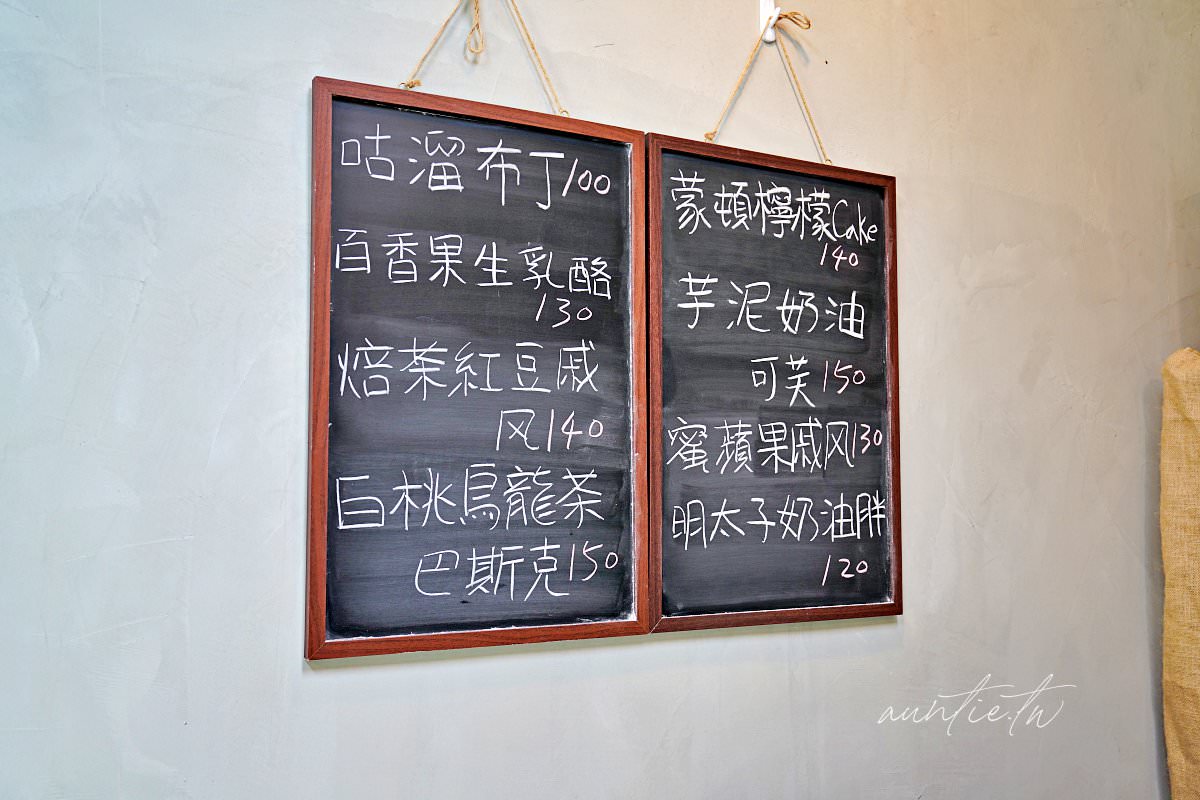 咕溜布丁100
百香果生乳酪
130
焙茶紅豆戚
风140
白桃烏龍茶
巴斯克150
蒙頓檸檬Cake
140
芋泥奶油
可芙150
蜜蘋果戚风130
明太子奶油胖
120
auntie.tw